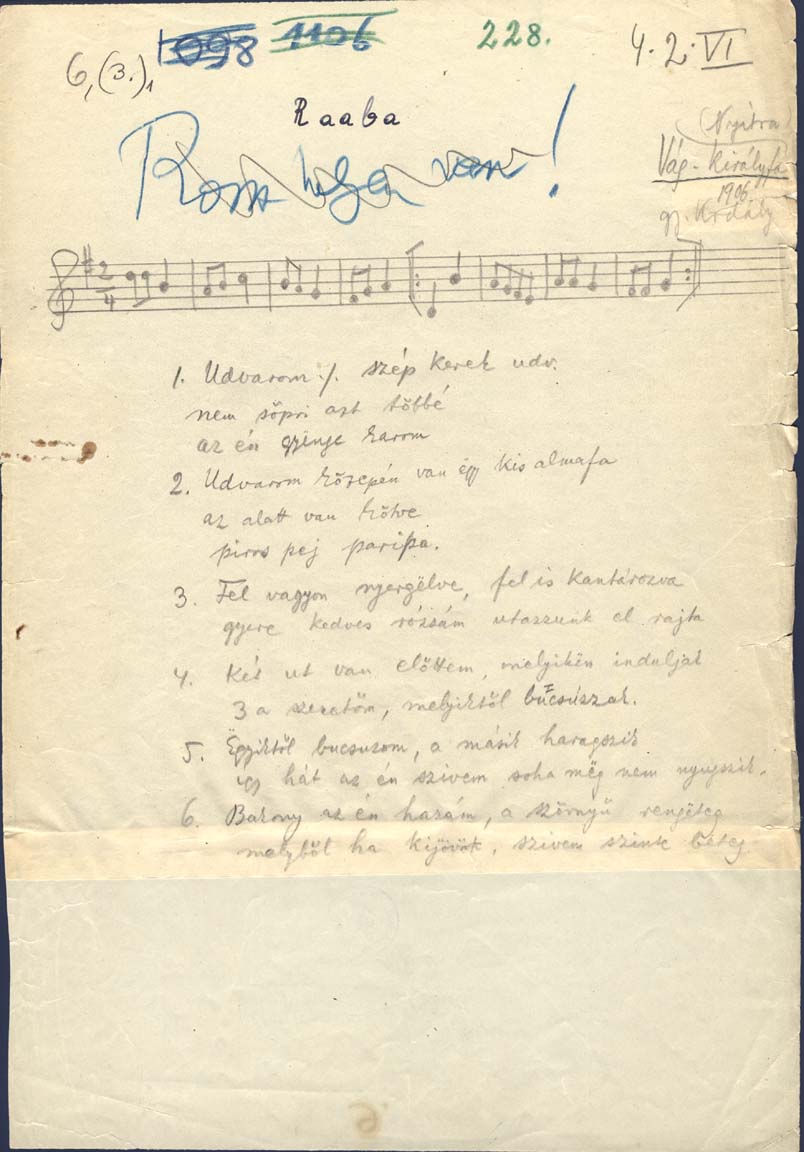 6,(3.),
1098
1106
228.
4.2.VI
Raaba
Rossz helyen van!
(Nyitra)
Vág-Királyfa
1906
gy. Kodály
2
4
1. Udvarom ./. szép kerek udv.
nem söpri azt többé
az én gyönge karom
2. Udvarom közepén van egy kis almafa
az alatt van kötve
piros pej paripa.
3. Fel vagyon nyergëlve, fel is kantározva
gyere kedves rózsám utazzunk el rajta
4. Két ut van előttem, melyikën induljak
3 a szeretőm, melyiktől bucsúzzak.
5. Ëgyiktől bucsuzom, a másik haragszik
igy hát az én szivem soha mëg nem nyugszik.
6. Bakony az én hazám, a szörnyű rengeteg
melyből ha kijövök, szivem szinte beteg.